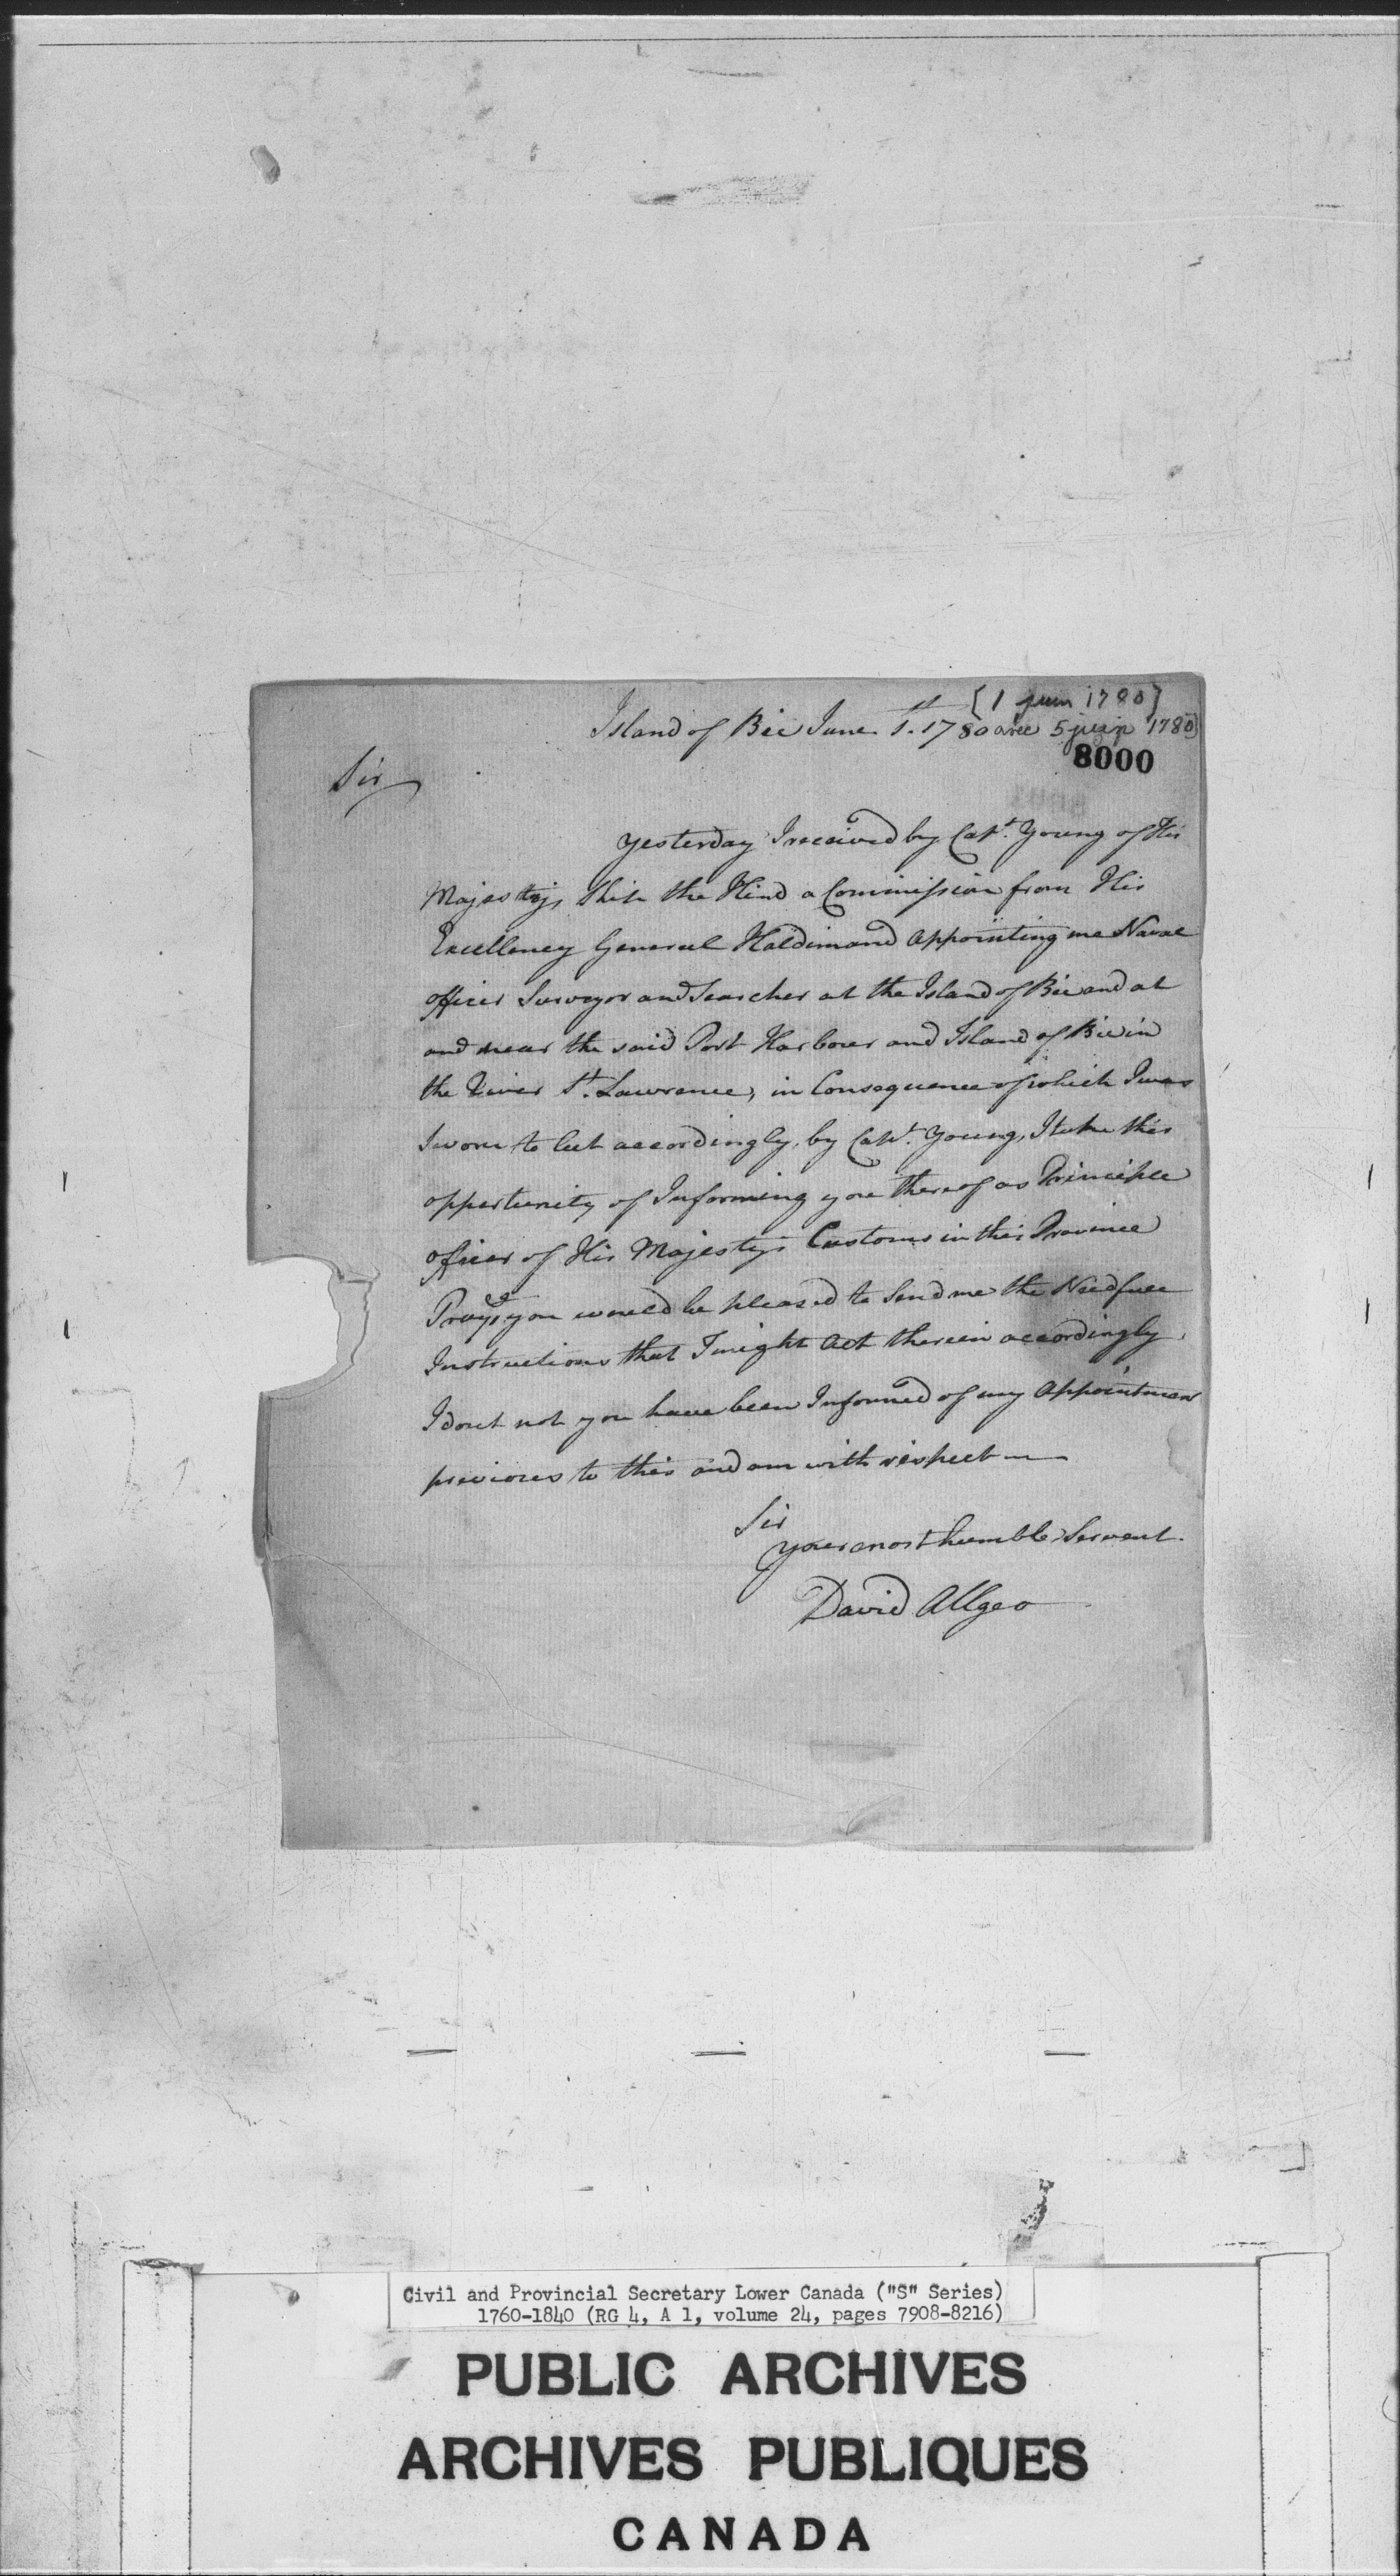 [1 juin 1780]
Island of Bic June 1st. 1780 avec 5 juin 1780]
8000
Sir
yesterday I received by Capt. Young of His
Majestys Ship the Hind a Commission from His
Excellency General Haldimand Appointing me Naval
officer Surveyor and Searcher at the Island of Bic and at
and near the said Port Harbour and Island of Bic in
the River St. Lawrence, in Consequence of which I was
Sworn to Act accordingly, by Capt. Young, I take this
opportunity of Informing you thereof as Principle
officer of His Majestys Customs in this Province
you would be pleased to Send me the Needfull
Instructions that I might Act therein accordingly,
I dout not you have been Informed of my Appointment
previous to this and am with respect
Sir
your most humble Servent.
David Allgeo
Civil and Provincial Secretary Lower Canada ("S" Series)
1760-1840 (RG 4, A 1, volume 24, pages 7908-8216)
PUBLIC ARCHIVES
ARCHIVES PUBLIQUES
CANADA